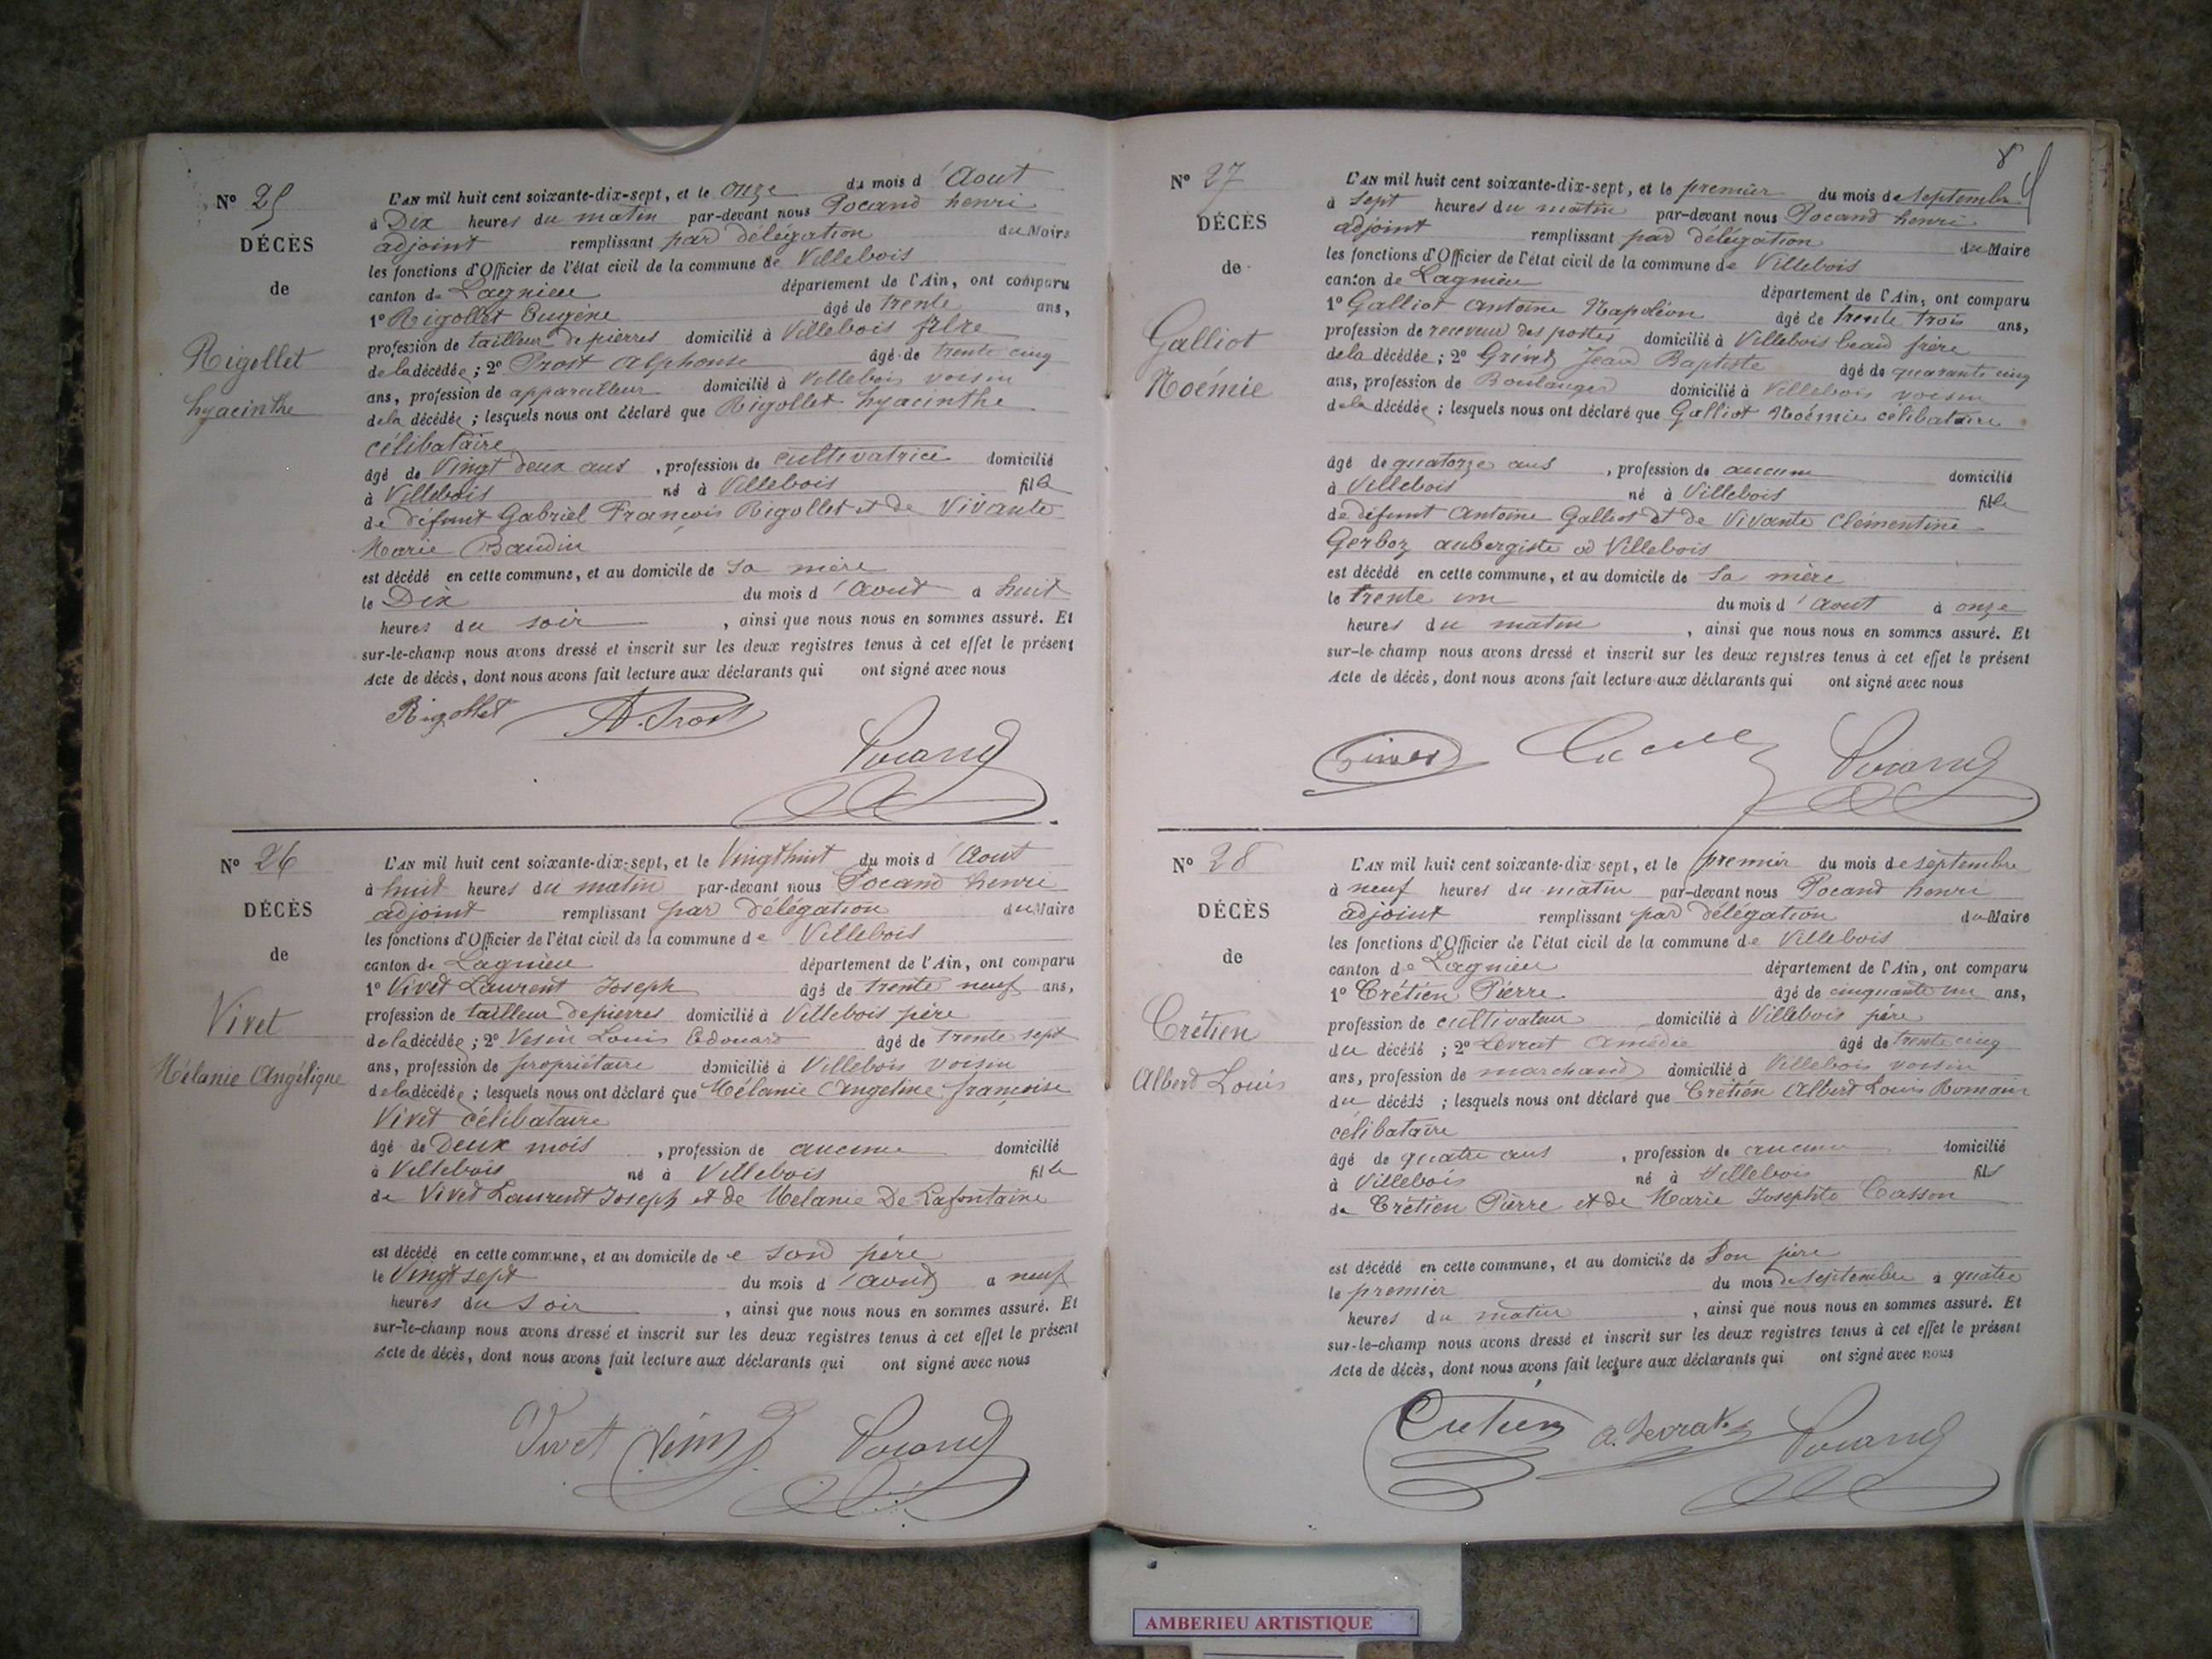 Nº 25
DÉCÈS
de
Rigollet
hyacinthe
L'AN mil huit cent soixante-dix-sept, et le onze du mois d'Aout
à Dix heures du matin par-devant nous Pocand henri
adjoint remplissant par délégation du Maire
les fonctions d'Officier de l'état civil de la commune de Villebois
canton de Lagnieu département de l'Ain, ont comparu
1º Rigollet Eugène âgé de trente ans,
profession de tailleur de pierres domicilié à Villebois frère
de la décédée ; 2º Prost Alphonse âgé de trente cinq
ans, profession de appareilleur domicilié à Villebois voisin
de la décédée ; lesquels nous ont déclaré que Rigollet hyacinthe
célibataire
âgé de Vingt deux ans , profession de cultivatrice domicilié
à Villebois né à Villebois fille
de défunt Gabriel François Rigollet et de Vivante
Marie Baudin
est décédé en cette commune, et au domicile de sa mère
le Dix du mois d'Aout à huit
heures du soir , ainsi que nous nous en sommes assuré. Et
sur-le-champ nous avons dressé et inscrit sur les deux registres tenus à cet effet le présent
Acte de décès, dont nous avons fait lecture aux déclarants qui ont signé avec nous
Rigollet A. Prost
Pocand
Nº 26
DÉCÈS
de
Vivet
Mélanie Angélique
L'AN mil huit cent soixante-dix-sept, et le Vingt huit du mois d'Aout
à huit heures du matin par-devant nous Pocand henri
adjoint remplissant par délégation du Maire
les fonctions d'Officier de l'état civil de la commune de Villebois
canton de Lagnieu département de l'Ain, ont comparu
1º Vivet Laurent Joseph âgé de trente neuf ans,
profession de tailleur de pierres domicilié à Villebois père
de la décédée ; 2º Vesin Louis Edouard âgé de trente sept
ans, profession de propriétaire domicilié à Villebois voisin
de la décédée ; lesquels nous ont déclaré que Mélanie Angeline françoise
Vivet célibataire
âgé de Deux mois , profession de aucune domicilié
à Villebois né à Villebois fille
de Vivet Laurent Joseph et de Mélanie De Lafontaine
est décédé en cette commune, et au domicile de e son père
le Vingt sept du mois d'aout à neuf
heures du soir , ainsi que nous nous en sommes assuré. Et
sur-le-champ nous avons dressé et inscrit sur les deux registres tenus à cet effet le présent
Acte de décès, dont nous avons fait lecture aux déclarants qui ont signé avec nous
Vivet Vesin Pocand
8
Nº 27
DÉCÈS
de
Galliot
Noémie
L'AN mil huit cent soixante-dix-sept, et le premier du mois de septembre
à sept heures du matin par-devant nous Pocand henri
adjoint remplissant par délégation du Maire
les fonctions d'Officier de l'état civil de la commune de Villebois
canton de Lagnieu département de l'Ain, ont comparu
1º Galliot Antoine Napoléon âgé de trente trois ans,
profession de receveur des postes domicilié à Villebois beau frère
de la décédée ; 2º Jean Baptiste âgé de quarante cinq
ans, profession de Boulanger domicilié à Villebois voisin
de la décédée ; lesquels nous ont déclaré que Galliot Noémie célibataire
âgé de quatorze ans , profession de aucune domicilié
à Villebois né à Villebois fille
de défunt Antoine Galliot et de Vivante Clémentine
Gerboz aubergiste à Villebois
est décédé en cette commune, et au domicile de sa mère
le trente un du mois d'Aout à onze
heures du matin , ainsi que nous nous en sommes assuré. Et
sur-le-champ nous avons dressé et inscrit sur les deux registres tenus à cet effet le présent
Acte de décès, dont nous avons fait lecture aux déclarants qui ont signé avec nous
Pocand
Nº 28
DÉCÈS
de
Crétien
Albert Louis
L'AN mil huit cent soixante-dix-sept, et le premier du mois de septembre
à neuf heures du matin par-devant nous Pocand henri
adjoint remplissant par délégation du Maire
les fonctions d'Officier de l'état civil de la commune de Villebois
canton de Lagnieu département de l'Ain, ont comparu
1º Crétien Pierre âgé de cinquante un ans,
profession de cultivateur domicilié à Villebois père
du décédé ; 2º Levrat Amédée âgé de trente cinq
ans, profession de marchand domicilié à Villebois voisin
du décédé ; lesquels nous ont déclaré que Crétien Albert Louis Romain
célibataire
âgé de quatre ans , profession de aucune domicilié
à Villebois né à Villebois fils
de Crétien Pierre et de Marie Josephte Casson
est décédé en cette commune, et au domicile de Son père
le premier du mois de septembre à quatre
heures du matin , ainsi que nous nous en sommes assuré. Et
sur-le-champ nous avons dressé et inscrit sur les deux registres tenus à cet effet le présent
Acte de décès, dont nous avons fait lecture aux déclarants qui ont signé avec nous
Crétien A. Levrat Pocand
AMBERIEU ARTISTIQUE